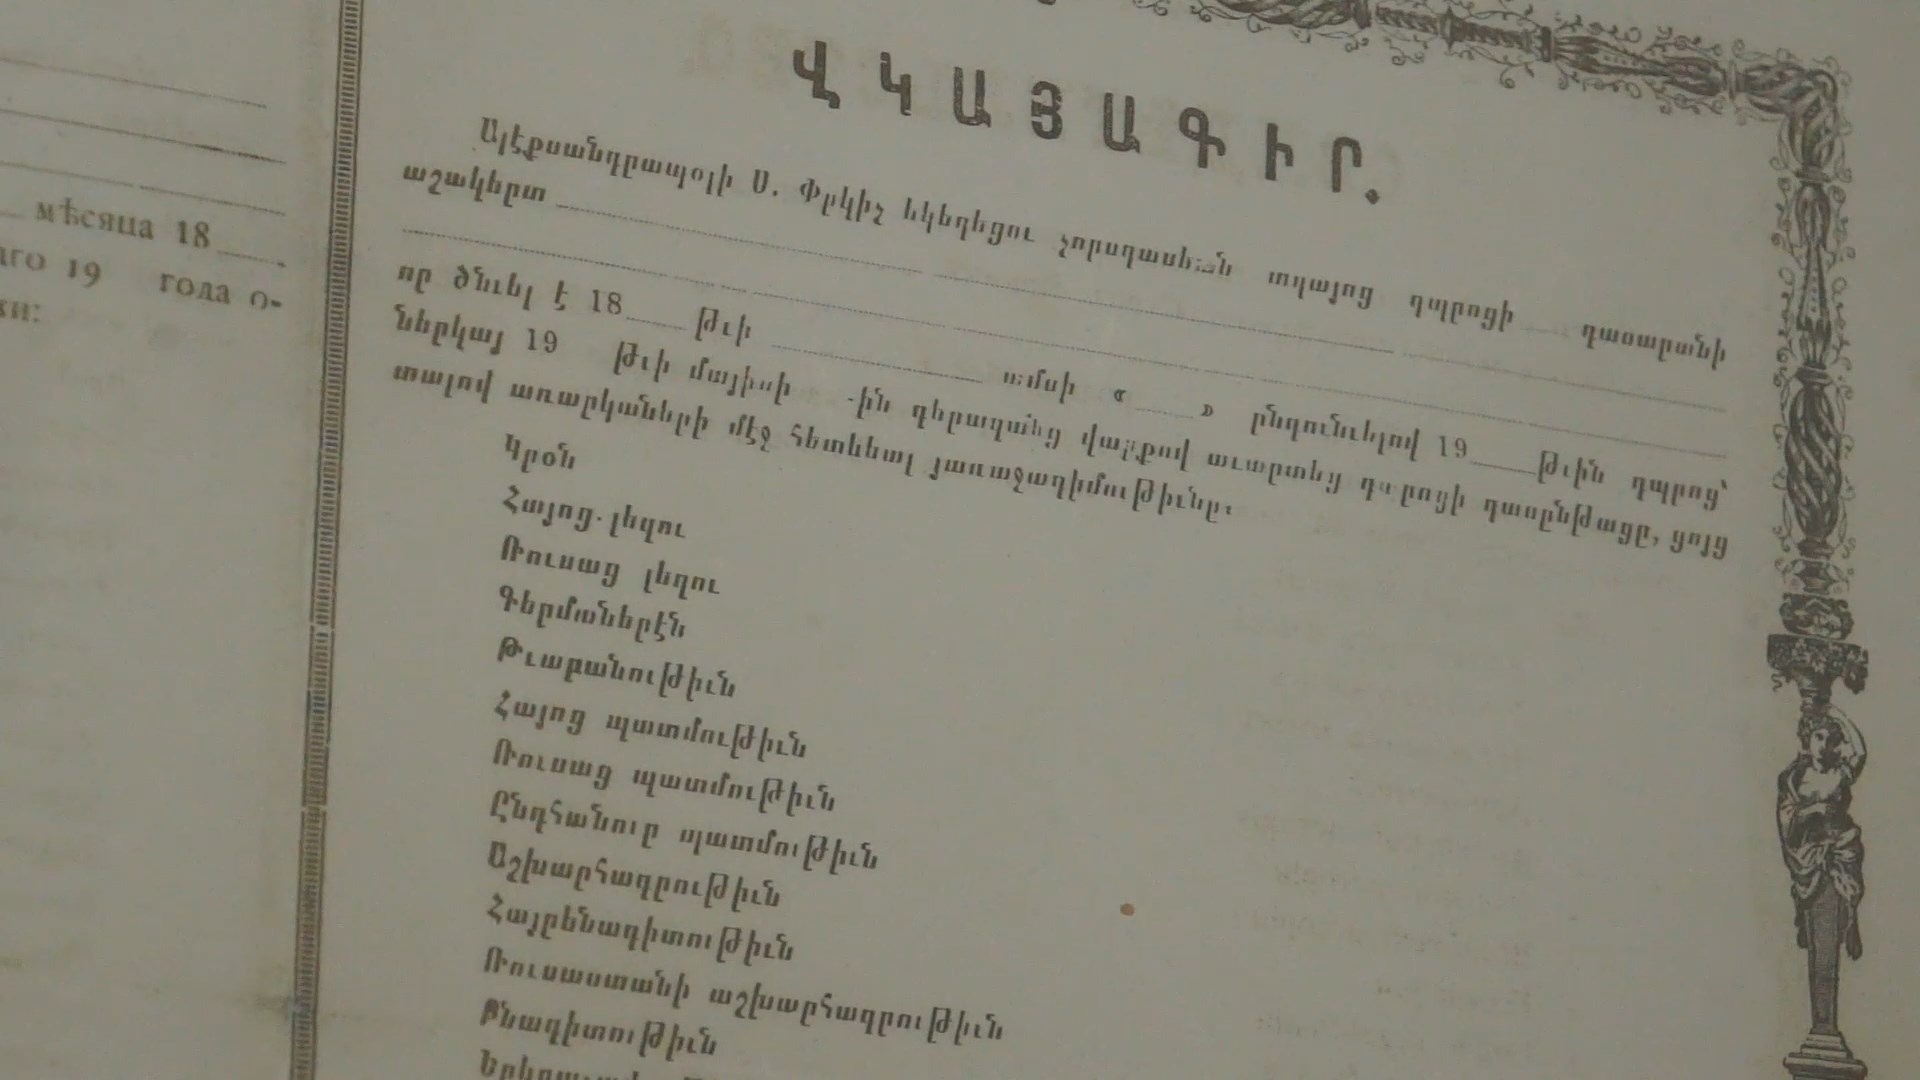 мѣсяца 18
19 года о-
ՎԿԱՅԱԳԻՐ.
Ալէքսանդրապօլի Ս. Փրկիչ եկեղեցու չորսդասեան տղայոց դպրոցի դասարանի
աշակերտ
որ ծնւել է 18 թւի ամսի « » ընդունւելով 19 թւին դպրոց՝
ներկայ 19 թւի մայիսի -ին գերազանց վարքով աւարտեց դպրոցի դասընթացը, ցոյց
տալով առարկաների մէջ հետևեալ յառաջադիմութիւնը.
Կրօն
Հայոց լեզու
Ռուսաց լեզու
Գերմաներէն
Թւաբանութիւն
Հայոց պատմութիւն
Ռուսաց պատմութիւն
Ընդհանուր պատմութիւն
Աշխարհագրութիւն
Հայրենագիտութիւն
Ռուսաստանի աշխարհագրութիւն
Բնագիտութիւն